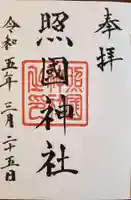 奉拝
照國神社
令和五年三月二十五日